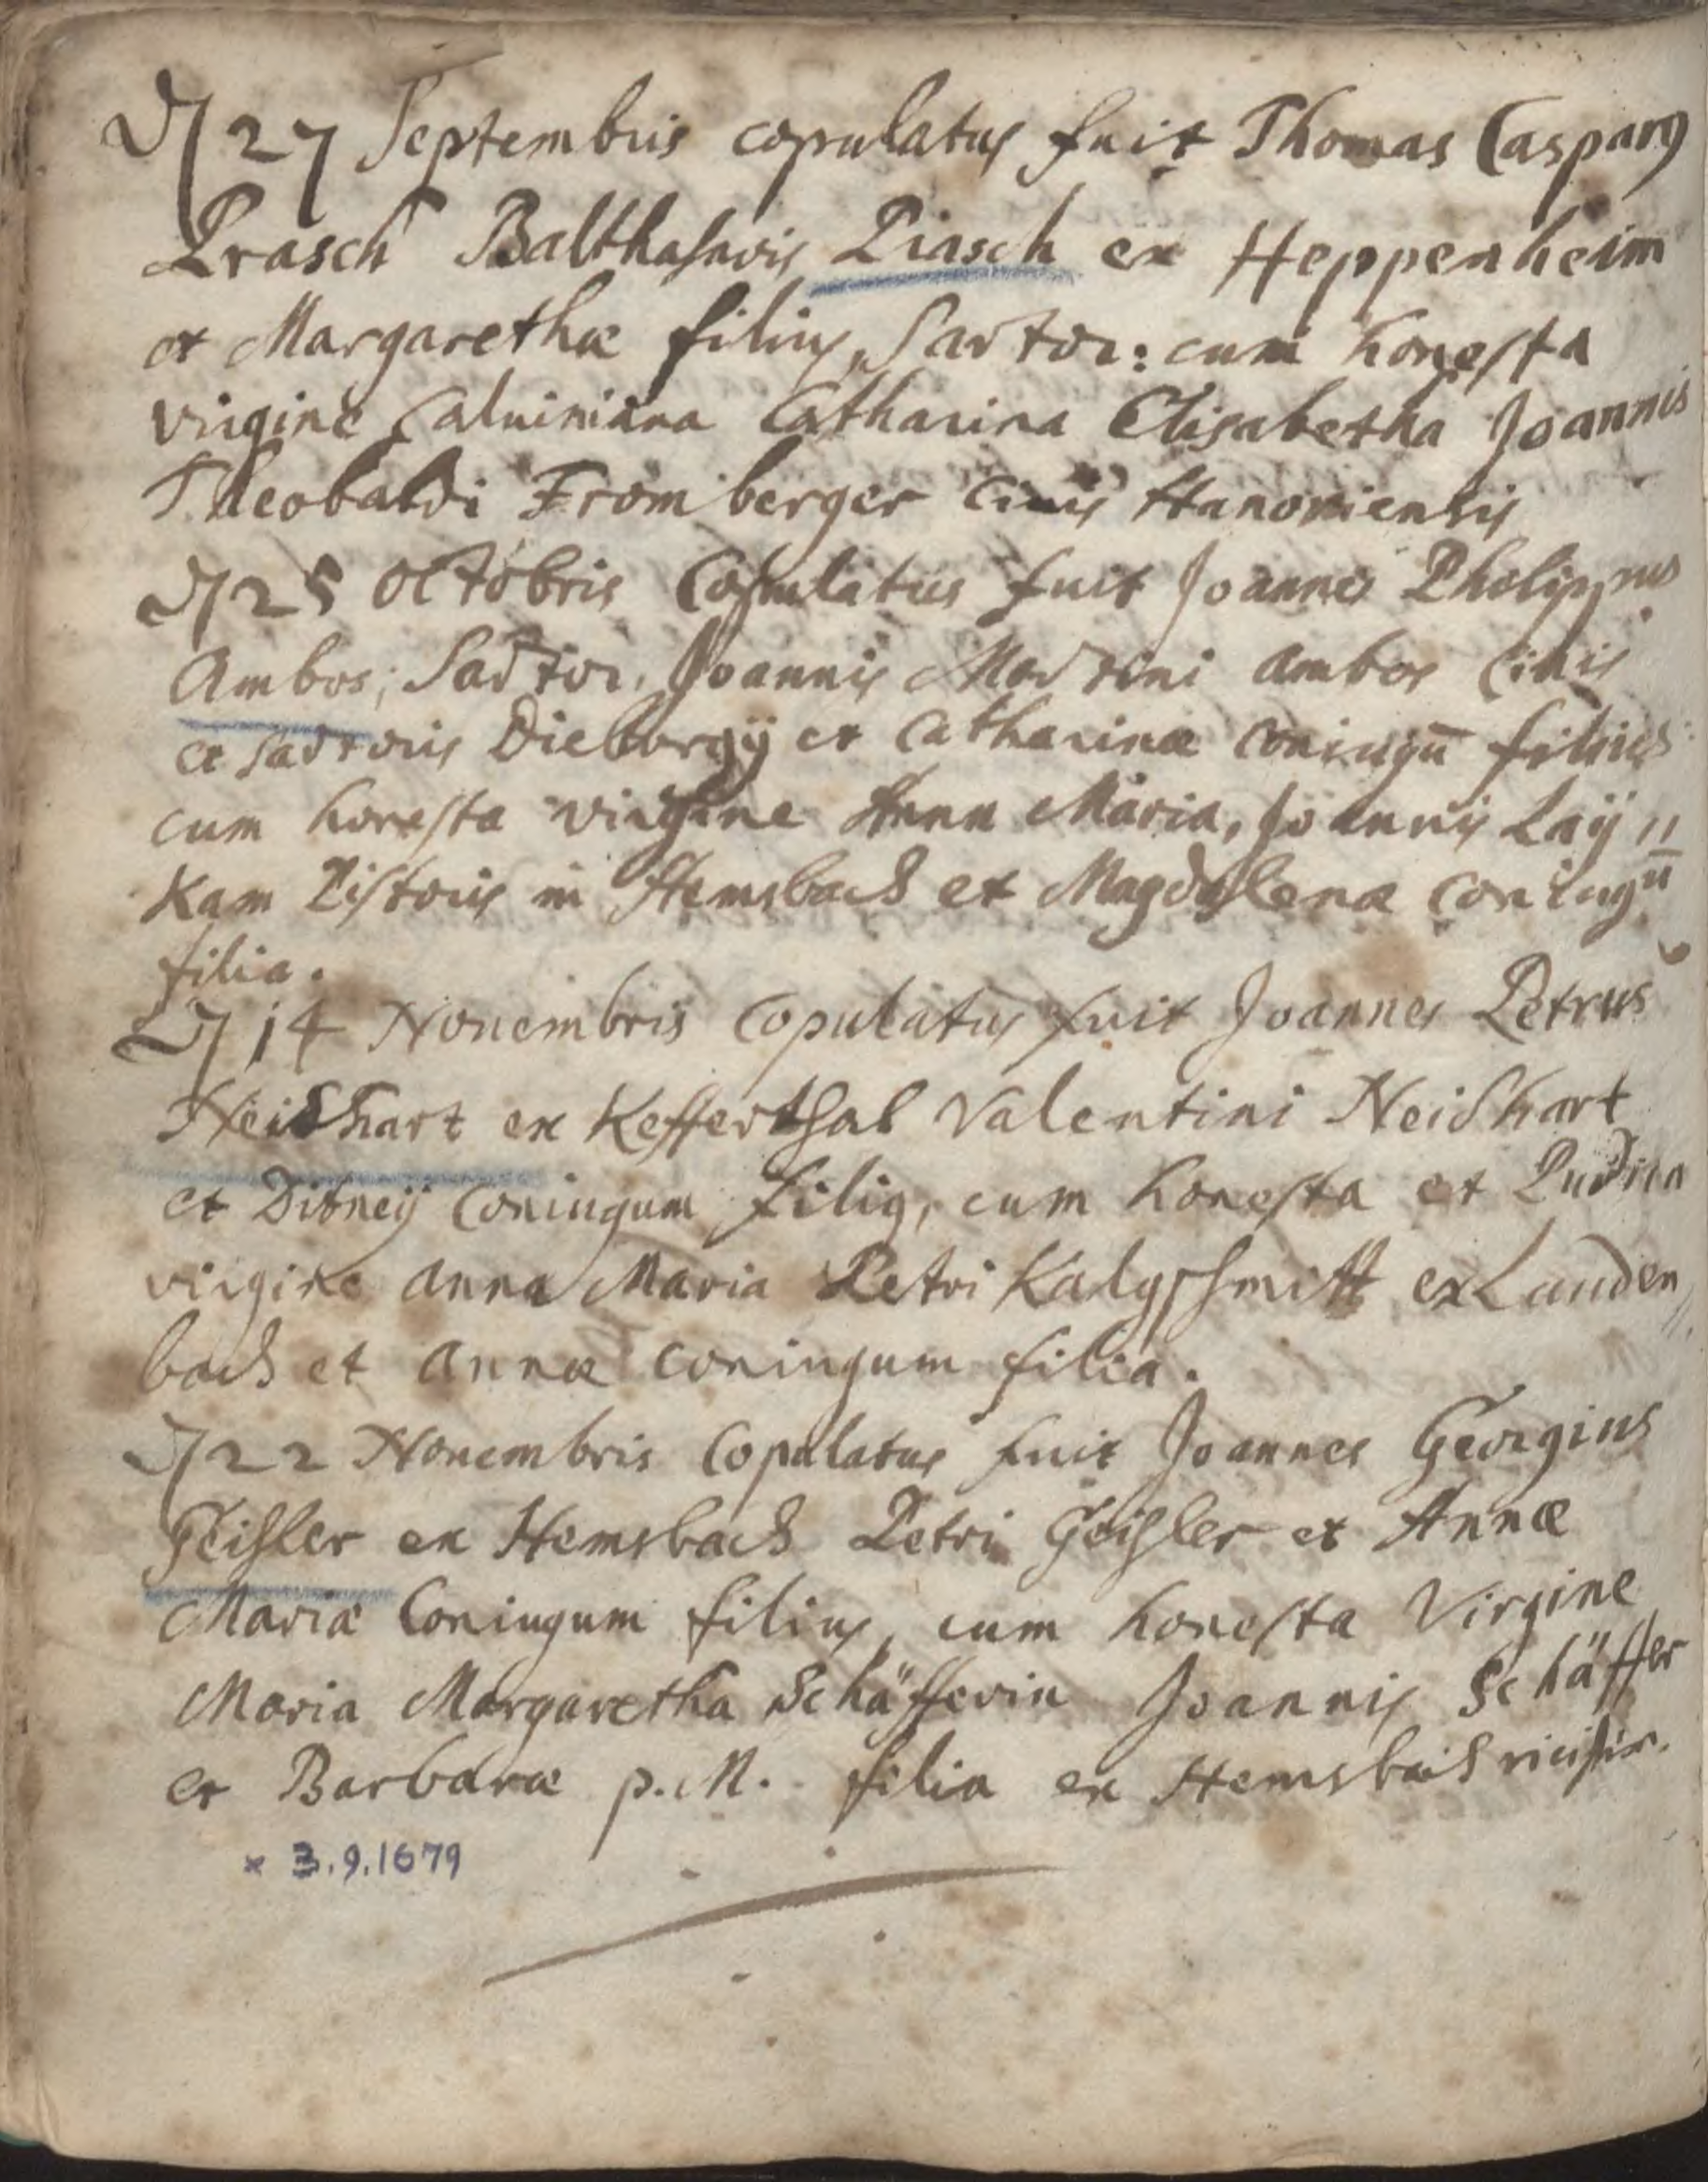 D 27 Septembris copulatus fuit Thomas Casparg
Prasch Balthasaris Prasch ex Heppenheim
et Margarethæ filius, Sartor: cum honesta
virgine Caluiniana Catharina Elisabetha Joannis
Theobaldi Fromberger Ciuis Hanouiensis
D 25 octobris Copulatus fuit Joannes Philippus
Ambos; Sartor, Joannis Martini Ambos Ciuis
et sartoris Dieburgÿ et Catharinæ Coniugū filius
cum honesta virgine Anna Maria, Joannis Laÿ〃
Kam Pistoris in Hemsbach et Magdalenæ coniugū
filia.
D 14 Nouembris Copulatus fuit Joannes Petrus
Neidhart ex Kefferthal Valentini Neidhart
et Coniugum filig, cum honesta et Pudica
virgine Anna Maria Petri Kalgschmitt ex Lauden〃
bach et Annæ coniugum filia.
D 22 Nouembris Copulatus fuit Joannes Georgius
Geisler ex Hemsbach Petri Geisler et Annæ
Mariæ Coniugum filius, cum honesta Virgine
Maria Margaretha Schäfferin Joannis Schäffer
et Barbaræ p.M. filia ex Hemsbach
× 3.9.1679